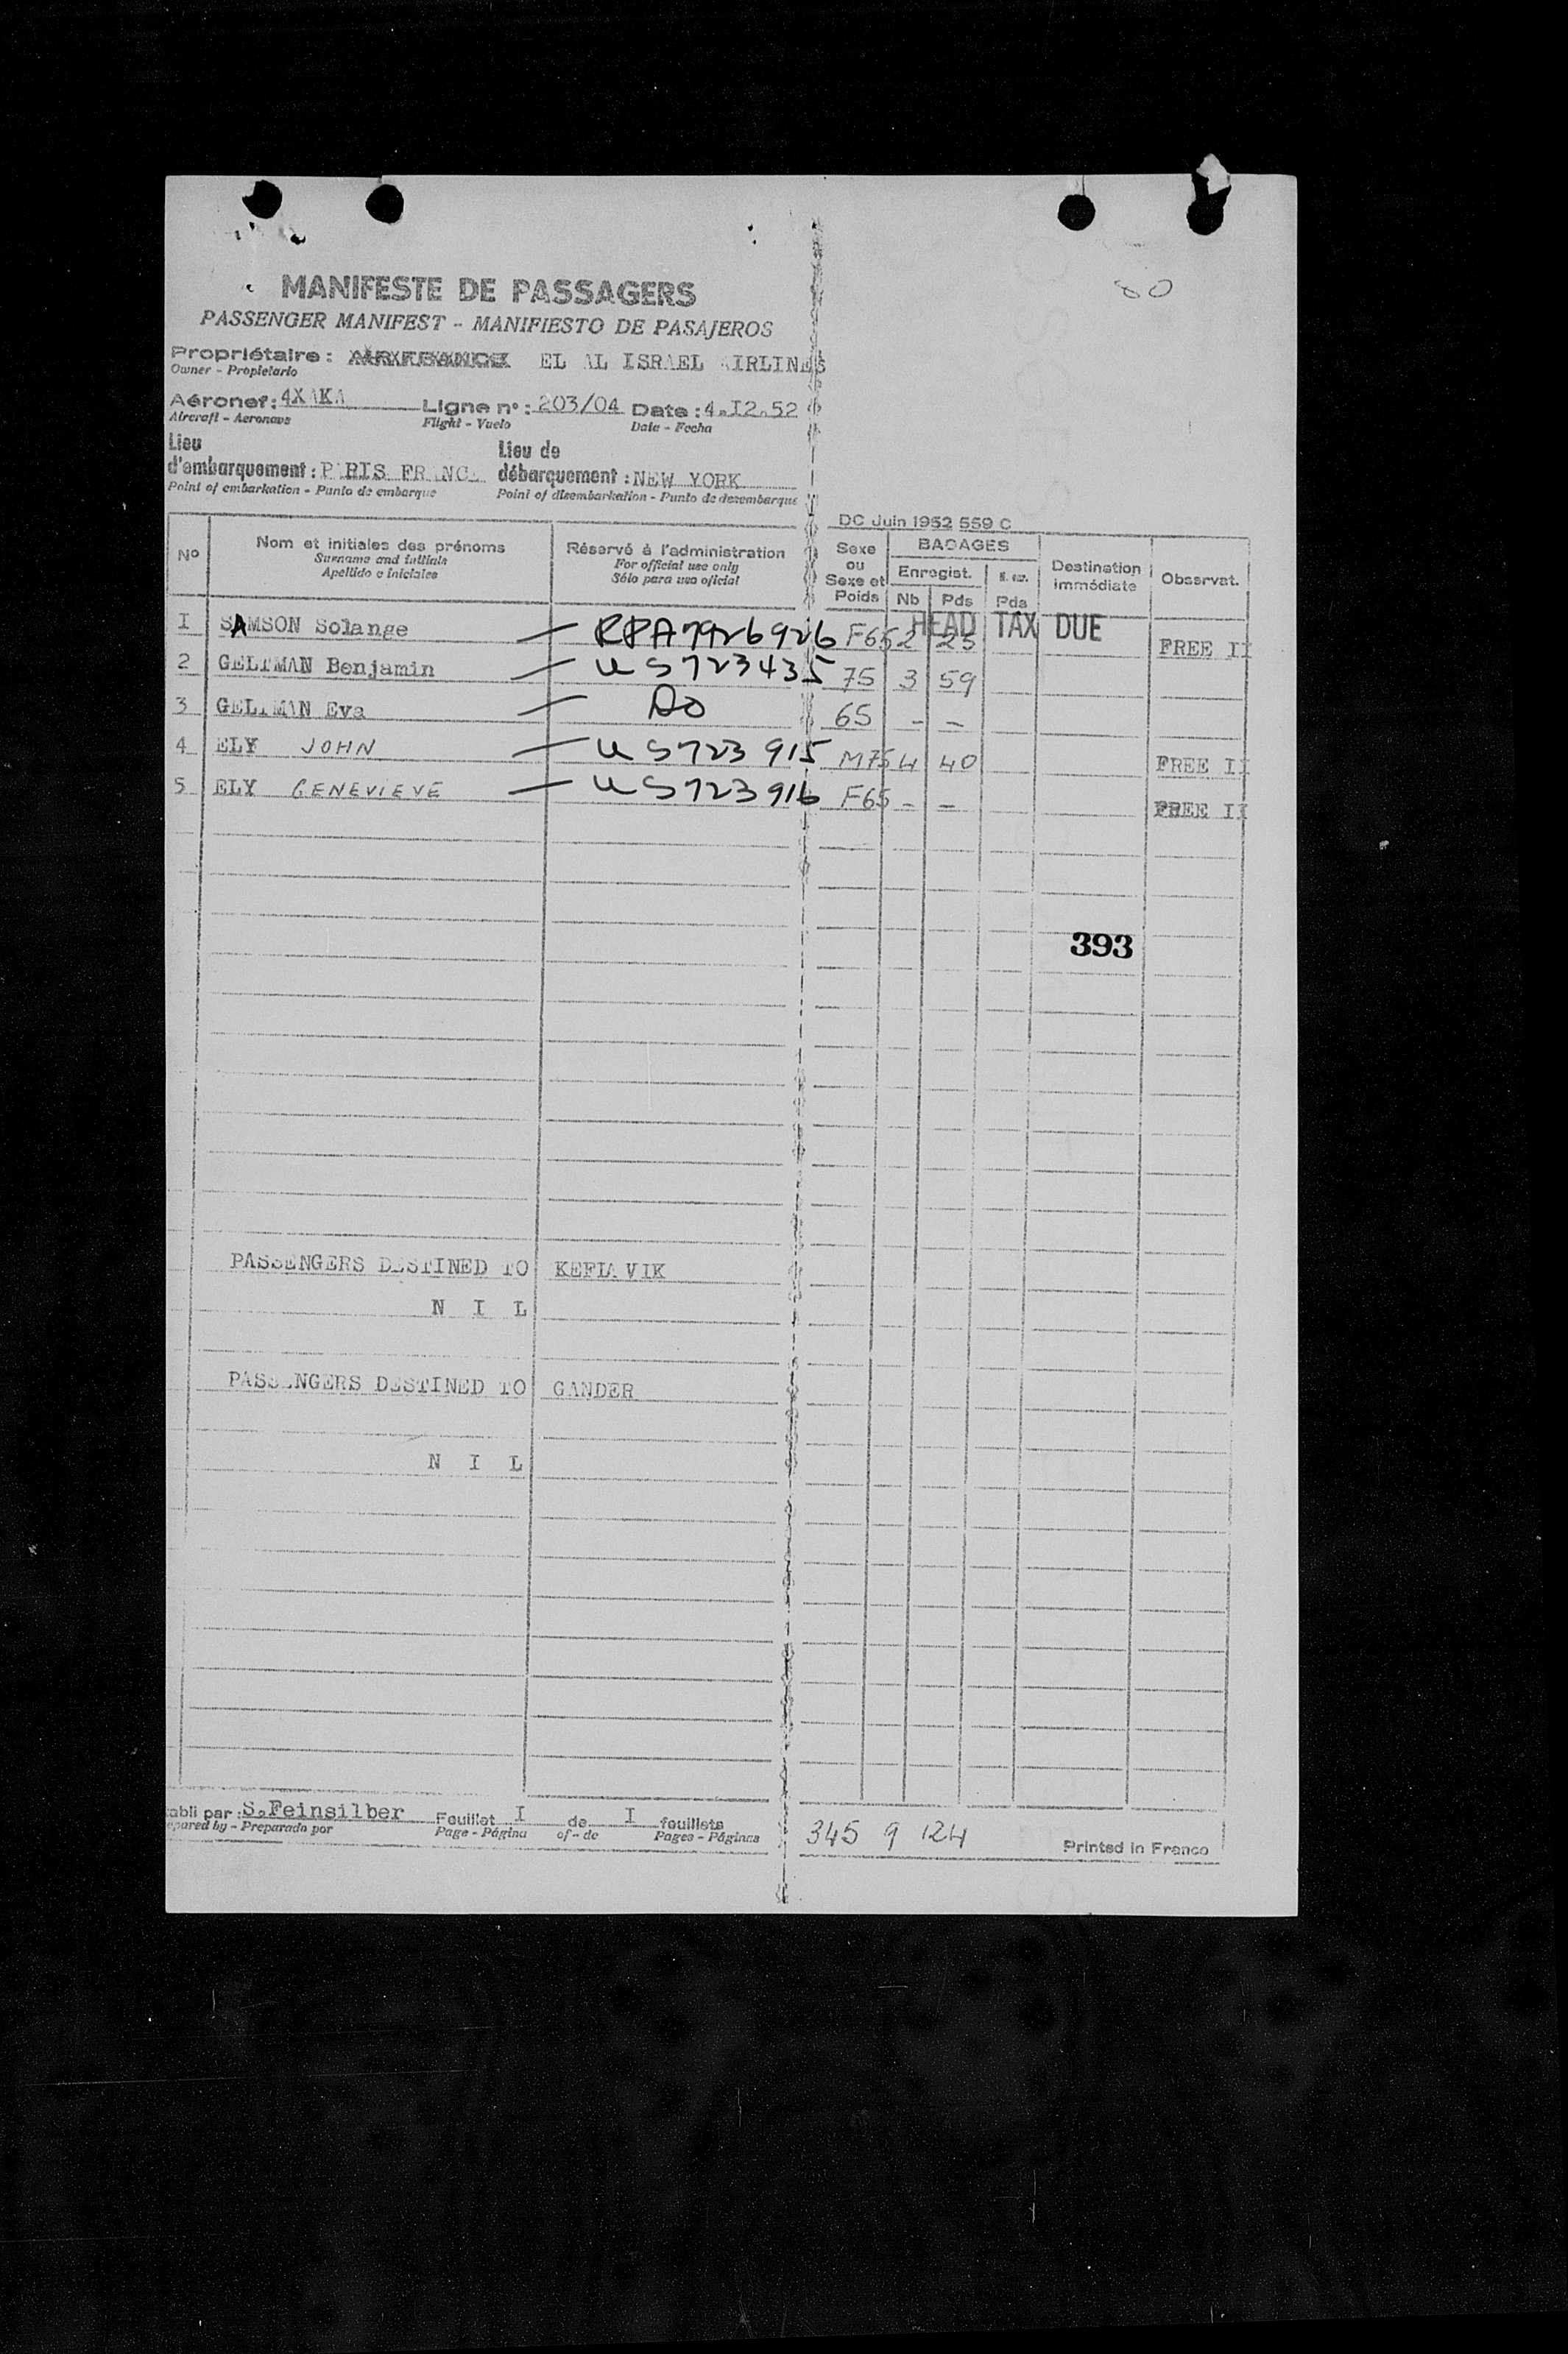 80
MANIFESTE DE PASSAGERS
PASSENGER MANIFEST - MANIFIESTO DE PASAJEROS
Propriétaire : EL AL ISRAEL AIRLINES
Owner - Propietario
Aéronef : 4XAKA Ligne n° : 203/04 Date : 4.I2.52
Aircraft - Aeronave Flight - Vuelo Date - Fecha
Lieu d'embarquement : PARIS FRANCE Lieu de débarquement : NEW YORK
Point of embarkation - Punto de embarque Point of disembarkation - Punto de desembarque
DC Juin 1952 559 C
N° Nom et initiales des prénoms Réservé à l'administration Sexe ou Sexe et Poids BAGAGES Destination immédiate Observat.
Surname and initials For official use only Enregist.
Apellido e iniciales Sólo para uso oficial Nb Pds Pds
HEAD TAX DUE
I SAMSON Solange — RPA7926926 F65 2 25 FREE II
2 GELTMAN Benjamin — US723435 75 3 59
3 GELTMAN Eva — DO 65 - -
4 ELY JOHN — US723915 M75 4 40 FREE II
5 ELY GENEVIEVE — US723916 F65 - - FREE II
393
PASSENGERS DESTINED TO KEFLAVIK
N I L
PASSENGERS DESTINED TO GANDER
N I L
abli par : S.Feinsilber Feuillet I de I feuillets
epared by - Preparado por Page - Página of - de Pages - Páginas
345 9 124
Printed in France